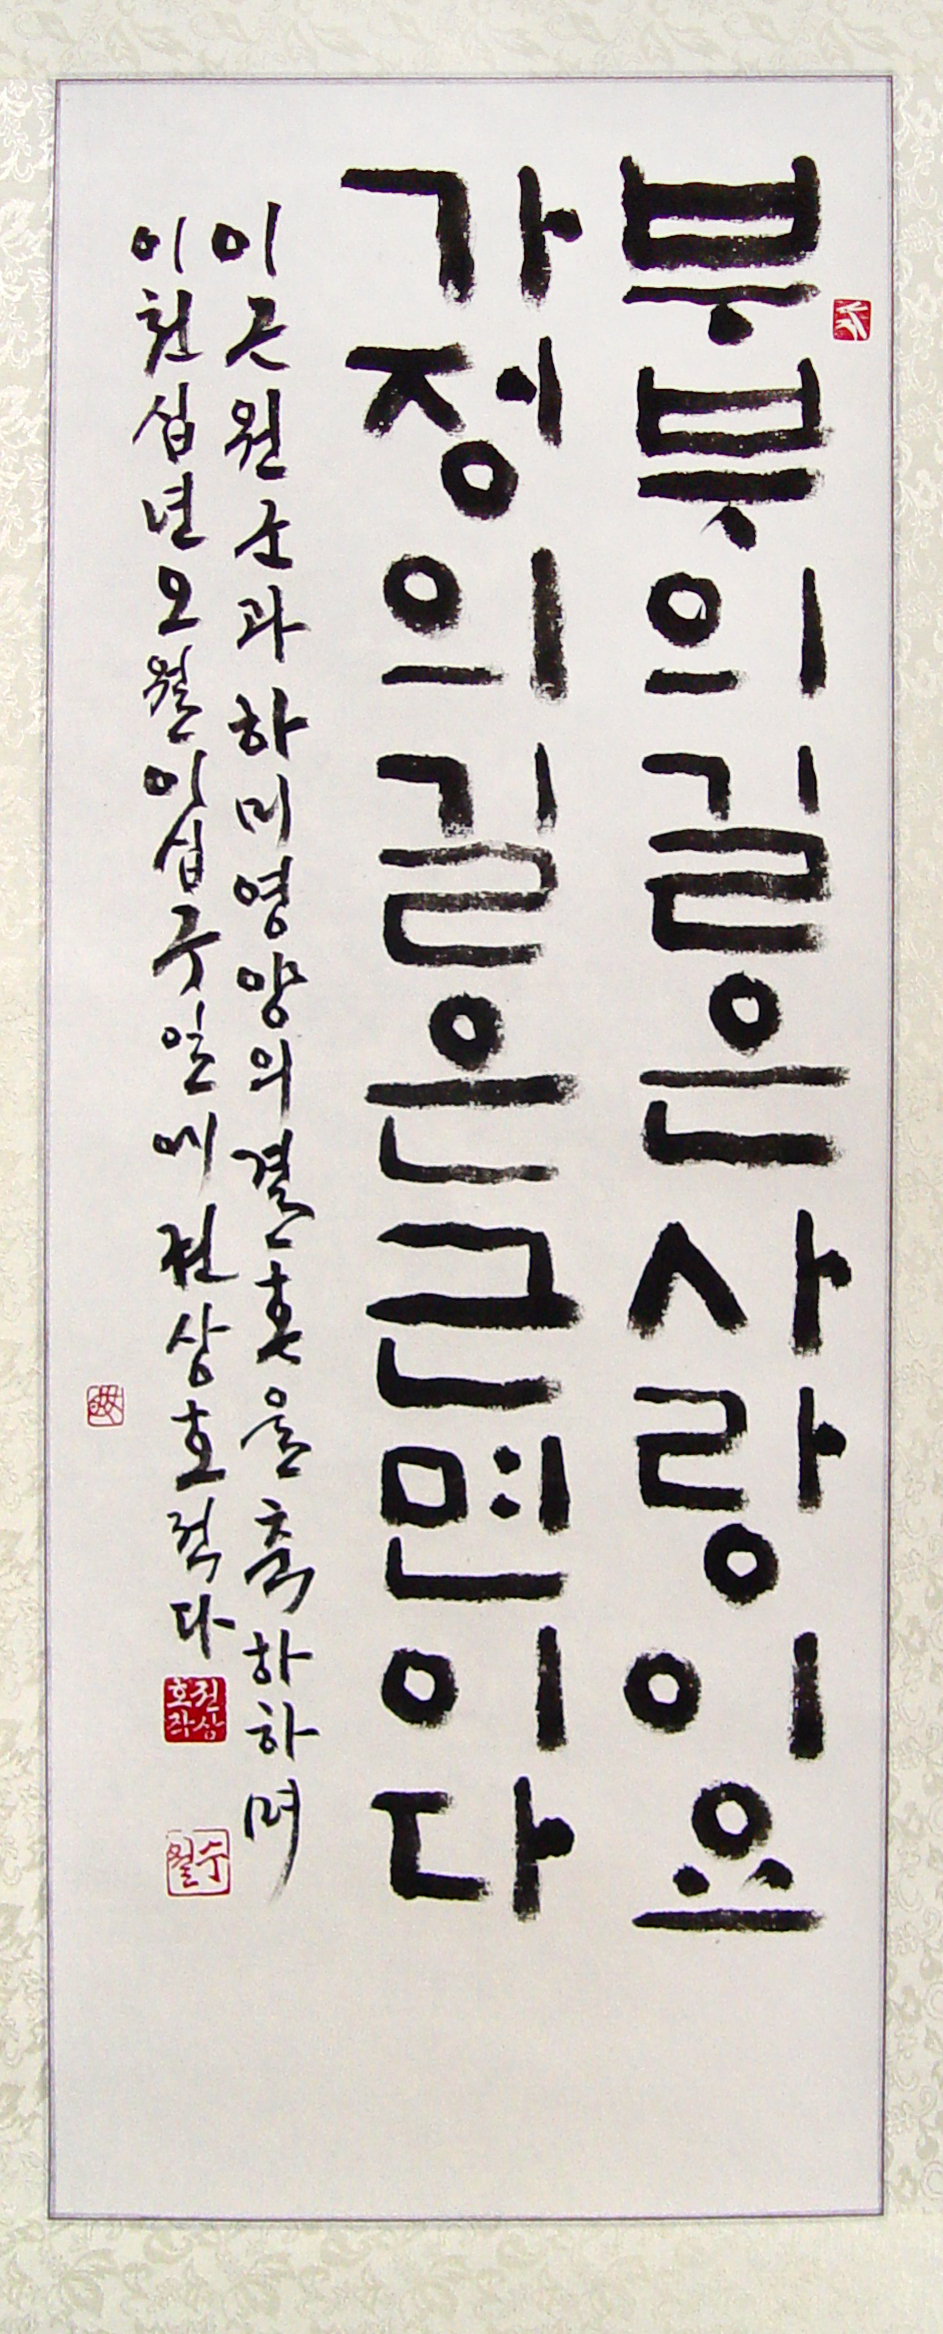 부부의 길은 사랑이요
가정의 길은 근면이다
이근원 군과 하미영 양의 결혼을 축하하며
이천십년 오월 이십구일에 권상호 적다
권상
호작
수
월